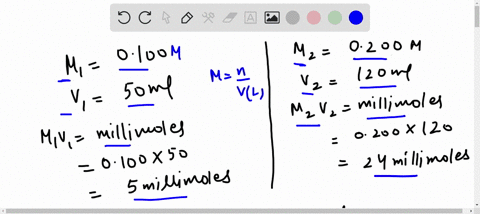 M₁ = 0.100M
V₁ = 50ml
M₁V₁ = millimoles
= 0.100 × 50
= 5 millimoles
M = n/V(L)
M₂ = 0.200 M
V₂ = 120ml
M₂ V₂ = millimoles
= 0.200 × 120
= 24 millimoles